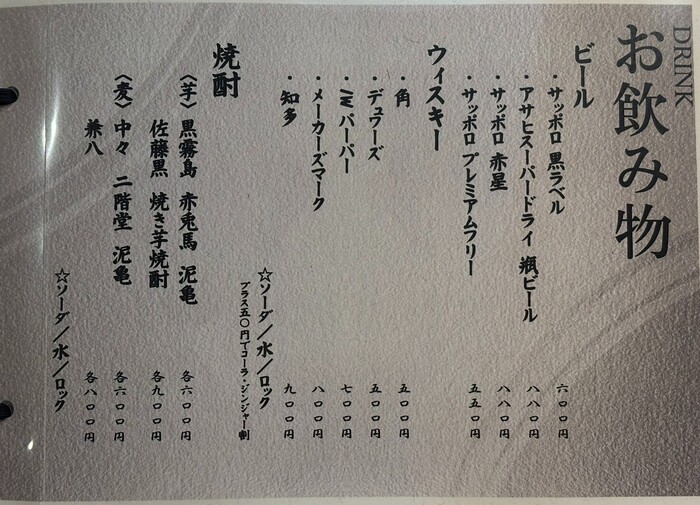 DRINK
お飲み物
ビール
・サッポロ 黒ラベル 六〇〇円
・アサヒスーパードライ 瓶ビール 八八〇円
・サッポロ 赤星 八八〇円
・サッポロ プレミアムフリー 五五〇円
ウィスキー
・角 五〇〇円
・デュワーズ 五〇〇円
・I.W.ハーパー 七〇〇円
・メーカーズマーク 八〇〇円
・知多 九〇〇円
☆ソーダ/水/ロック
プラス五〇円でコーラ・ジンジャー割
焼酎
〈芋〉 黒霧島 赤兎馬 泥亀 各六〇〇円
佐藤黒 焼き芋焼酎 各九〇〇円
〈麦〉 中々 二階堂 泥亀 各六〇〇円
兼八 各八〇〇円
☆ソーダ/水/ロック